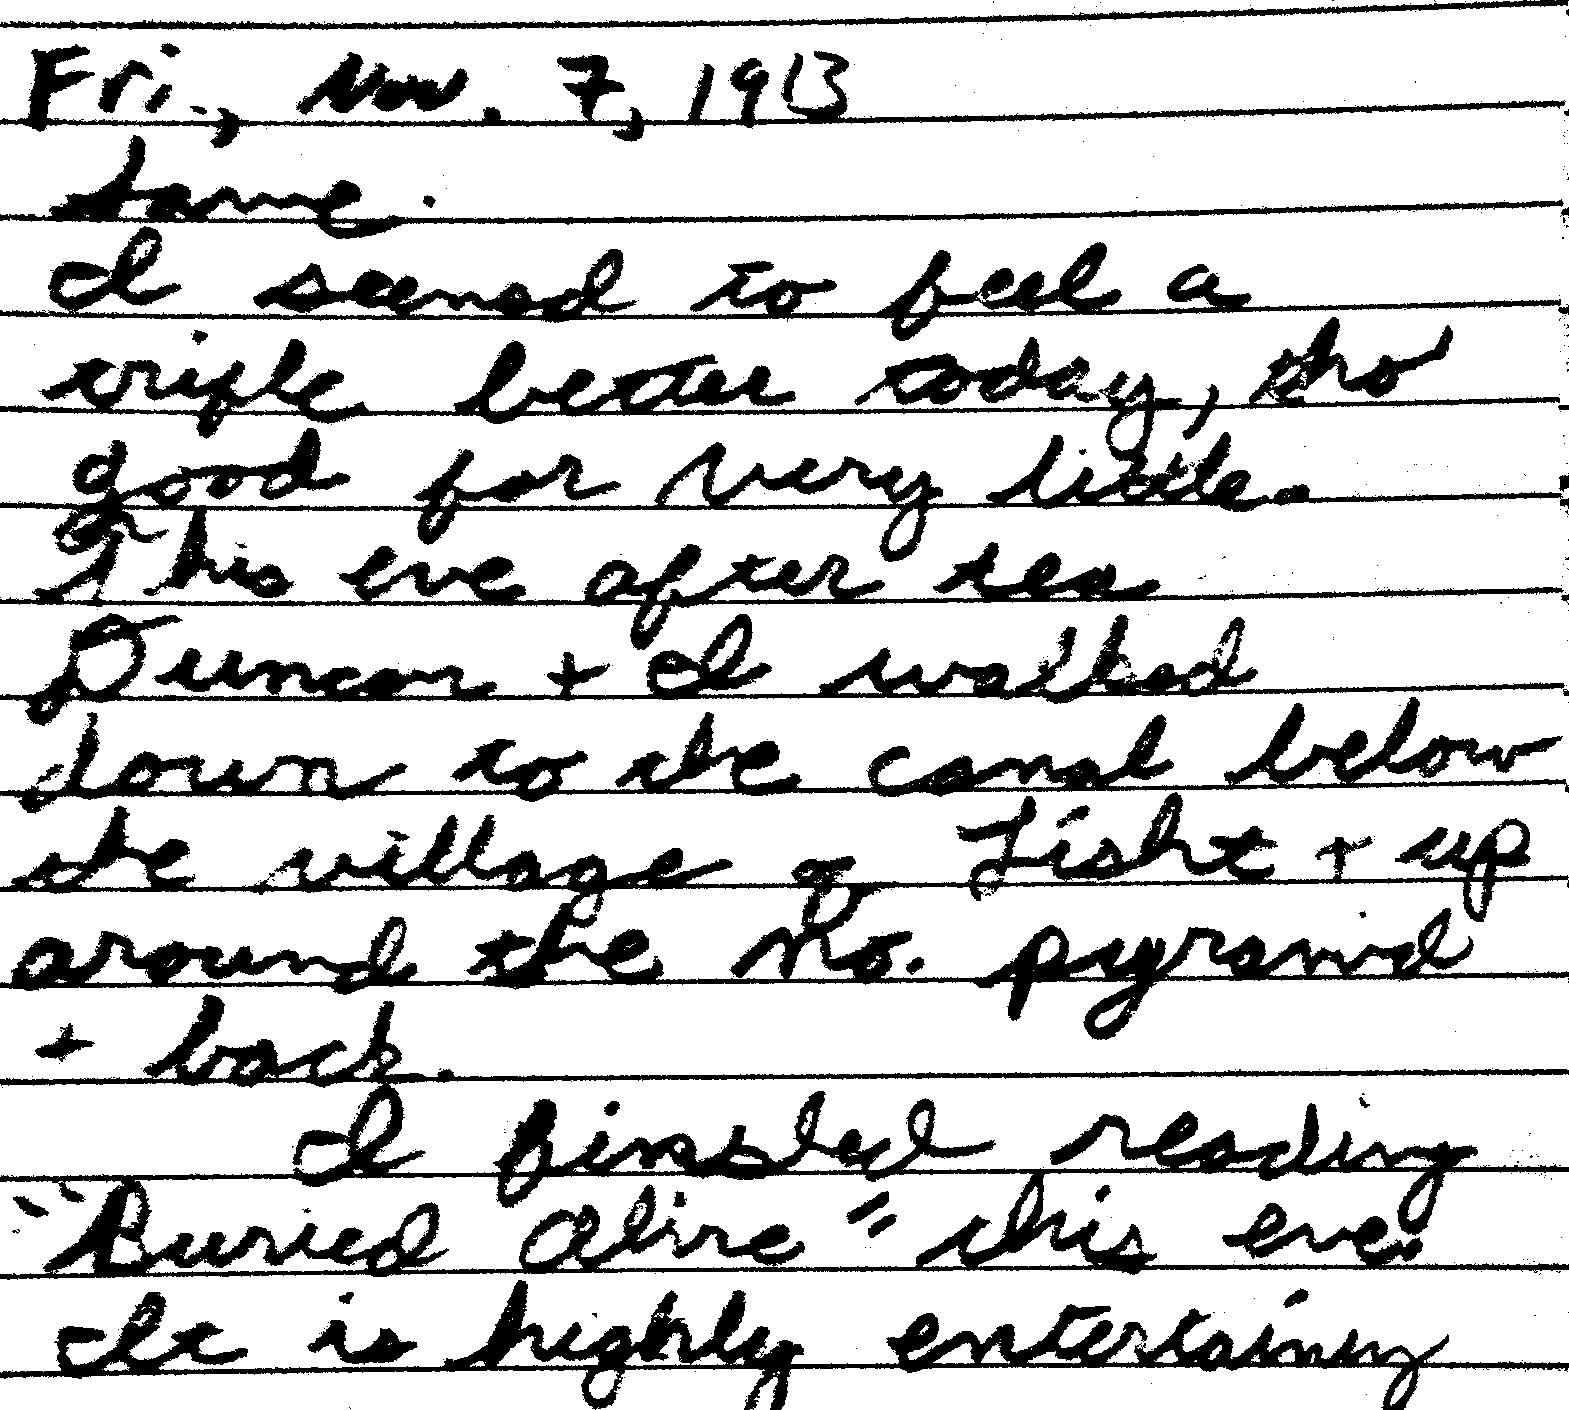 Fri., Nov. 7, 1913
Same.
I seemed to feel a
trifle better today, tho
good for very little.
This eve after tea
Duncan + I walked
down to the canal below
the village of Lisht + up
around the No. pyramid
+ back.
I finished reading
"Buried Alive" this eve.
It is highly entertaining